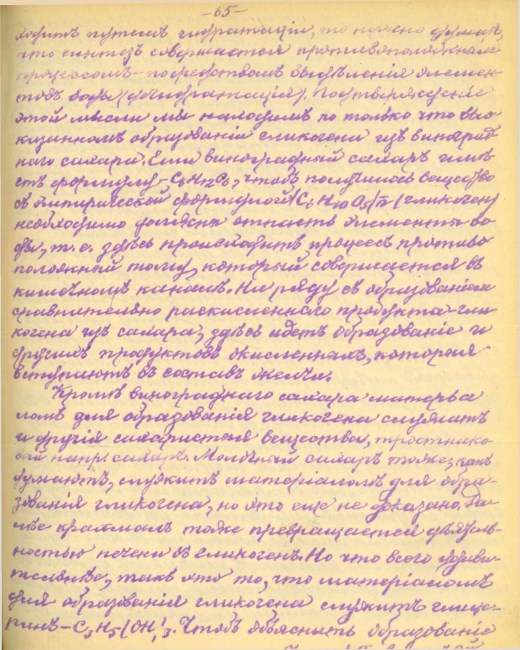 -65-
ходитъ путемъ гидратацiи, то можно думать,
что синтезъ совершается противоположнымъ
процессомъ - посредствомъ выдѣленiя элемен-
товъ воды (дегидратацiя). Подтвержденiе
этой мысли мы находимъ по только что вы-
казанномъ образованiи гликогена изъ виноград-
наго сахара. Если виноградный сахаръ имѣ-
етъ формулу - C6H12O6, чтобъ получилось вещество
съ эмпирической формулой (C6H10O5)n (гликогенъ)
необходимо должна отнасть элементы во-
ды, т.е. здѣсь происходитъ процессъ противо-
положный тому, который совершается въ
кишечномъ каналѣ. На ряду съ образованiемъ
сравнительно раскисленнаго продукта гли-
когена изъ сахара, здѣсь идетъ образованiе и
другихъ продуктовъ окисленныхъ, которыя
вступаютъ въ составъ желчи.
Кромѣ винограднаго сахара матерья-
ломъ для образованiя гликогена служатъ
и другiя сахаристыя вещества, тростнико-
вый напр. сахаръ. Молочный сахаръ тоже, какъ
думаютъ, служитъ матерiаломъ для обра-
зованiя гликогена, но это еще не доказано. Да-
лѣе крахмалъ тоже превращается дѣятель-
ностью печени въ гликогенъ. Но что всего удиви-
тельнѣе, такъ это то, что матерiаломъ
для образованiя гликогена служитъ глице-
ринъ - C3H5(OH)3. Чтобъ объяснить образованiе